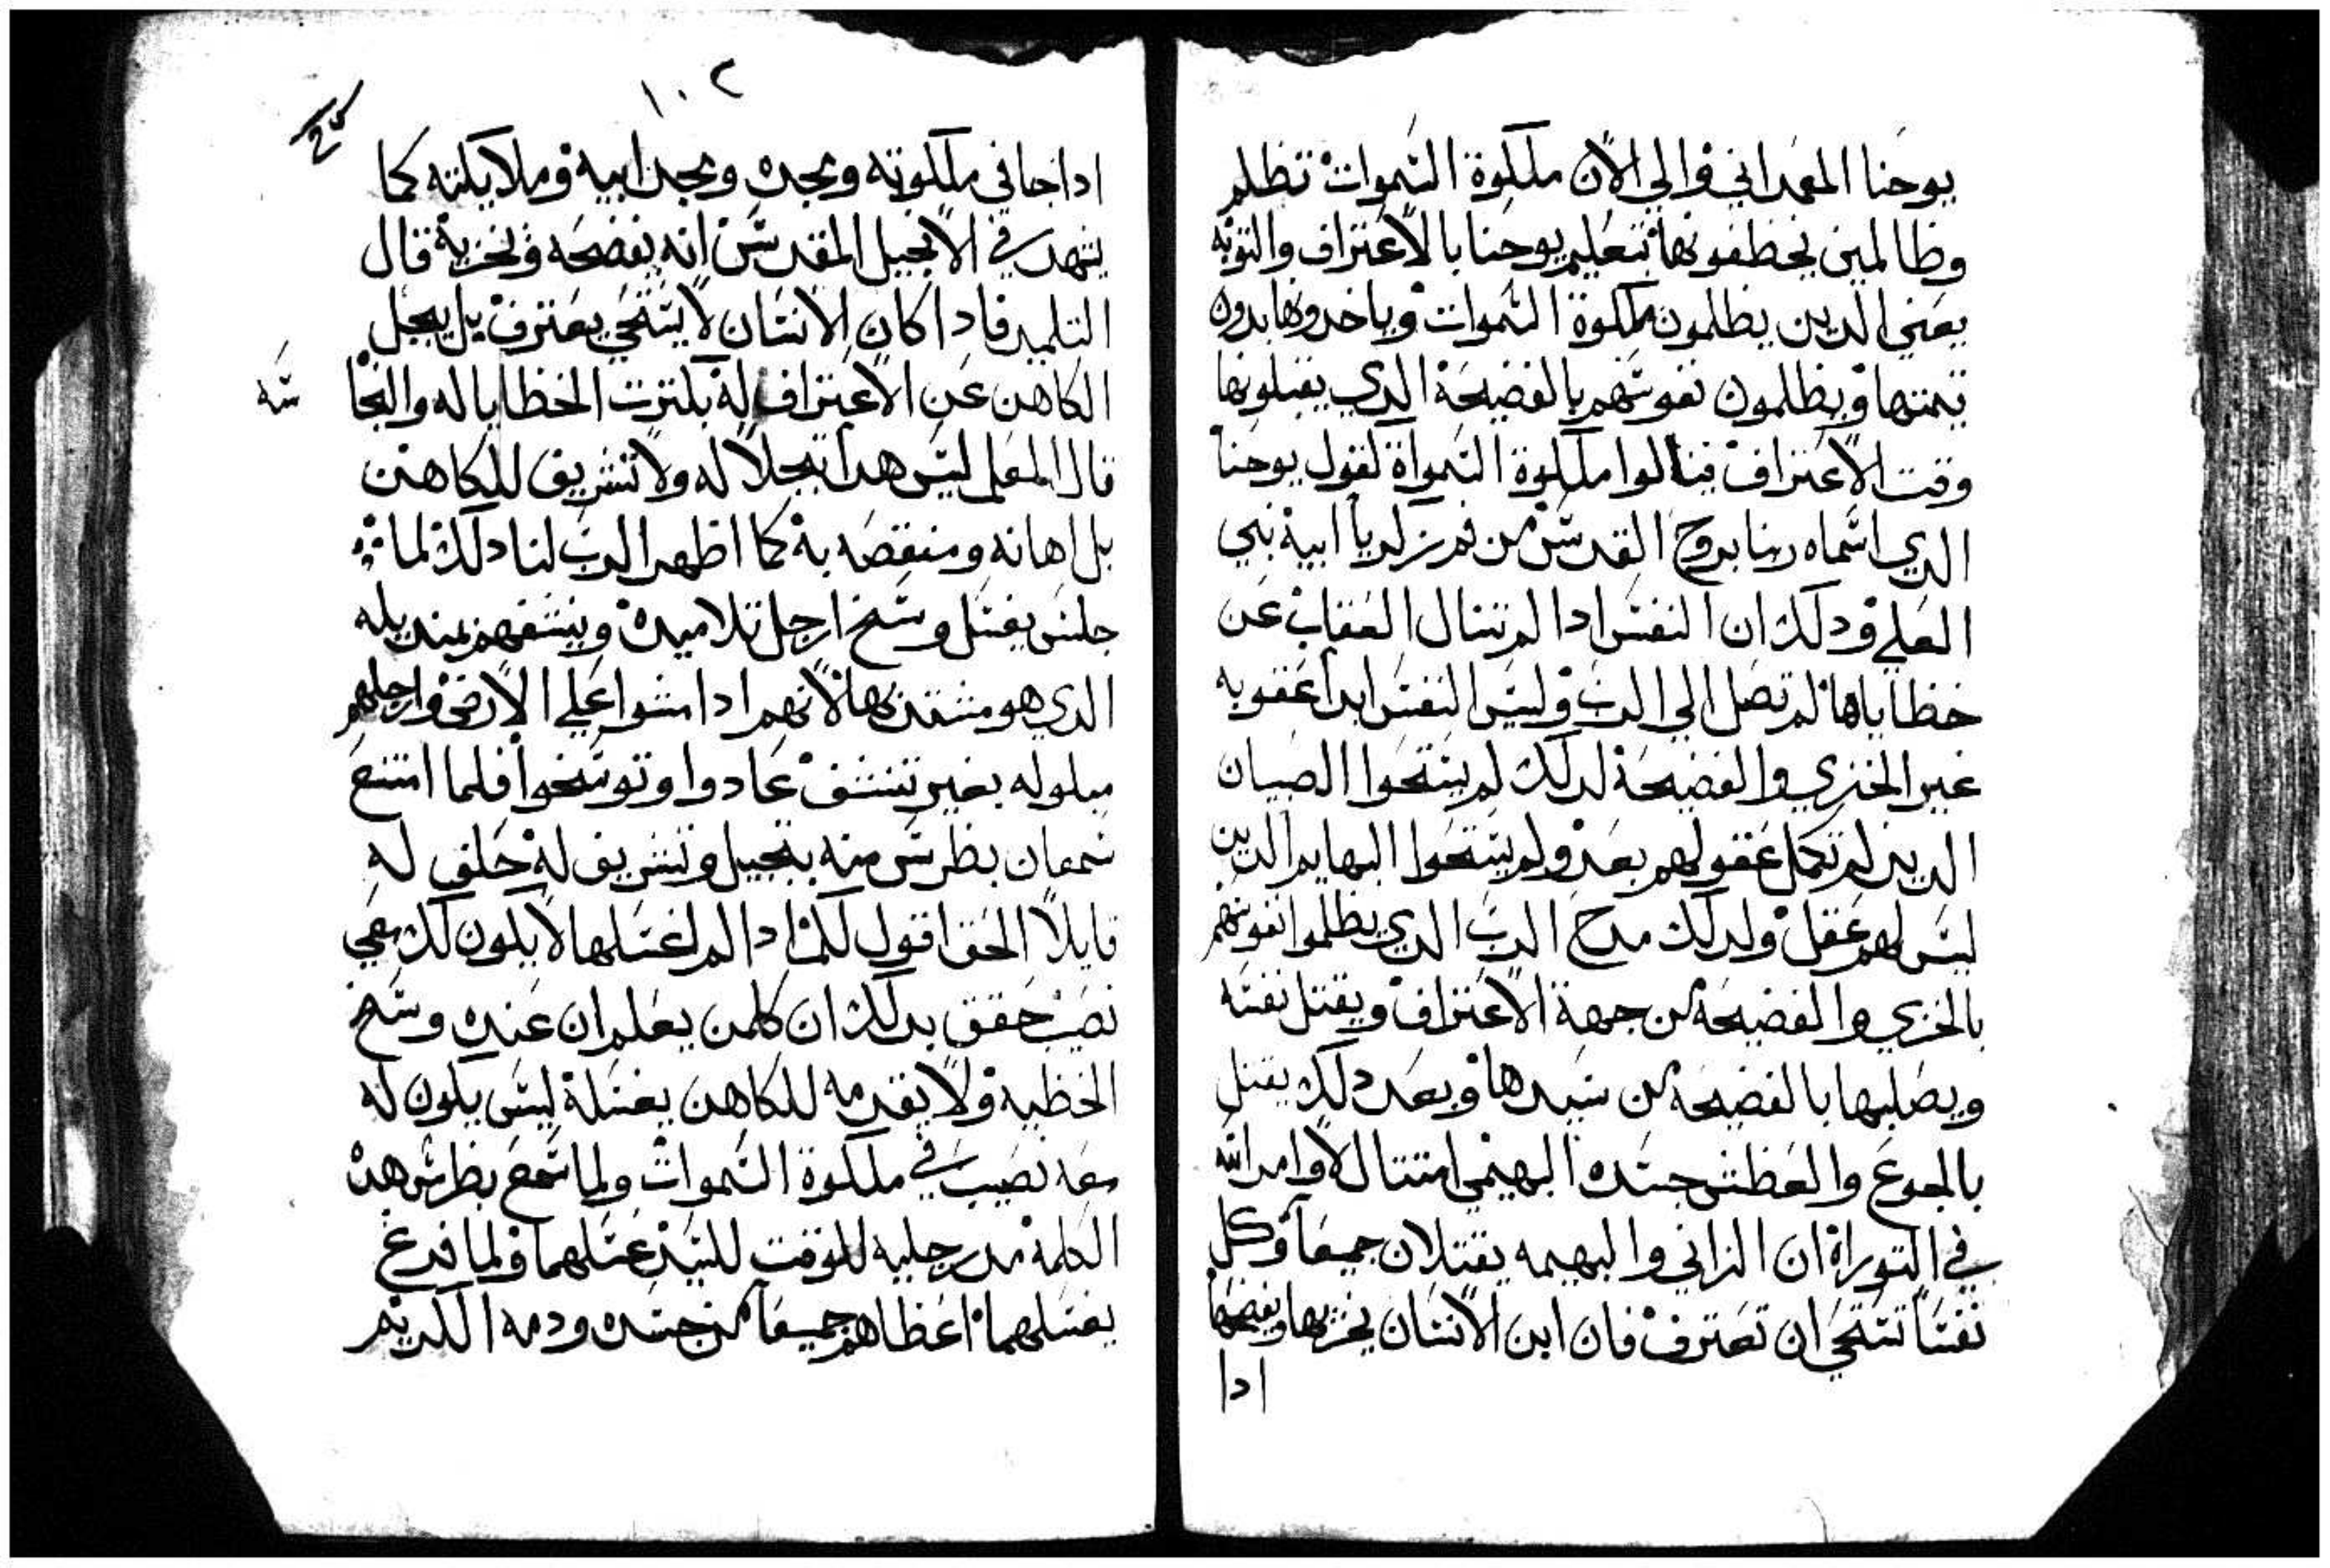 يوحنا المعمداني والي الان ملكوة السموات تظلم
وظالمين يخطفونها بتعليم يوحنا بالاعتراف والتوبه
يعني الدين يظلمون ملكوة السموات وياخدونها بدون
تمنها ويظلمون نفوسهم بالفضيحة الدي يقبلونها
وقت الاعتراف فينالوا ملكوة السمواة لقول يوحنا
الدي اسماه ربنا بروح القدس من فم زكريا ابيه نبي
العلي ودلك ان النفس ادا لم تنال العقاب عن
خطاياها لم تصل الي الرب وليس النفس ابدا عقوبه
غير الخزي والفضيحة لدلك لم يستحوا الصبيان
الدين لم تكمل عقولهم بعد ولم يستحوا البهايم الدين
ليس لهم عقل ولدلك مدح الرب الدي يظلموا نفوسهم
بالخزي والفضيحة من جهة الاعتراف ويقتل نفسه
ويصلبها بالفضيحة من سيدها وبعد دلك يقتل
بالجوع والعطش جسده البهيمي امتتال لاوامر الله
في التوراة ان الزاني والبهيمه يقتلان جميعا وكل
نفسا تستحي ان تعترف فان ابن الانسان يخزيها ويفضحها
ادا
١٠٢
ادا جا في ملكوته ومجده ومجد ابيه وملايكته كما
يشهد في الانجيل المقدس انه يفضحه ويخزية قال
التلميد فادا كان الانسان لا يستحي يعترف بل يبجل
الكاهن عن الاعتراف له بكترت الخطايا له والنجا
سه
قال المعلم ليس هدا تبجلا له ولا تشريف للكاهن
بل اهانه ومنقصه به كما اظهر الرب لنا دلك لما
جلس يغسل وسخ ارجل تلاميده وينشفهم بمنديله
الدي هو متشد بها لانهم ادا مشوا علي الارض وارجلهم
مبلوله بغير تنشف عادوا وتوسخوا فلما امتنع
شمعان بطرس منه بتبجيل وتشريف له حلف له
قايلا الحق اقول لك ادا لم اغسلها لا يكون لك معي
نصيب حقق بدلك ان كلمن يعلم ان عنده وسخ
الخطيه ولا يقدمه للكاهن يغسلة ليس يكون له
معه نصيب في ملكوة السموات ولما سمع بطرس هده
الكلمة مد رجليه للوقت للسيد غسلهما ولما فرغ
يغسلهما اعطاهم جميعا من جسده ودمه الكريم